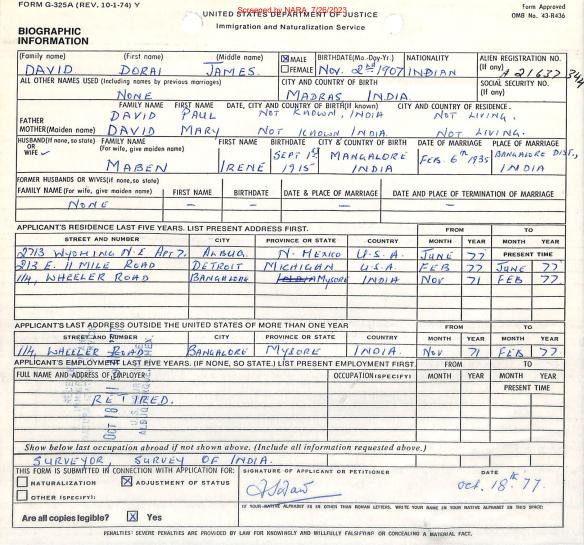 FORM G-325A (REV. 10-1-74) Y
Screened by NARA, 7/26/2023
UNITED STATES DEPARTMENT OF JUSTICE
Immigration and Naturalization Service
Form Approved
OMB No. 43-R436
BIOGRAPHIC INFORMATION
(Family name) (First name) (Middle name) MALE FEMALE BIRTHDATE (Mo.-Day-Yr.) NATIONALITY ALIEN REGISTRATION NO. (If any)
DAVID DORAI JAMES. Nov. 2nd 1907 INDIAN A 21637 344
ALL OTHER NAMES USED (Including names by previous marriages) CITY AND COUNTRY OF BIRTH SOCIAL SECURITY NO. (If any)
NONE MADRAS INDIA
FAMILY NAME FIRST NAME DATE, CITY AND COUNTRY OF BIRTH (If known) CITY AND COUNTRY OF RESIDENCE.
FATHER DAVID PAUL NOT KNOWN, INDIA NOT LIVING.
MOTHER (Maiden name) DAVID MARY NOT KNOWN INDIA. NOT LIVING.
HUSBAND (If none, so state) OR WIFE FAMILY NAME (For wife, give maiden name) FIRST NAME BIRTHDATE CITY & COUNTRY OF BIRTH DATE OF MARRIAGE PLACE OF MARRIAGE
MABEN IRENE SEPT 1st 1915 MANGALORE INDIA FEB. 6th 1935 BANGALORE DIST., INDIA
FORMER HUSBANDS OR WIVES (if none, so state)
FAMILY NAME (For wife, give maiden name) FIRST NAME BIRTHDATE DATE & PLACE OF MARRIAGE DATE AND PLACE OF TERMINATION OF MARRIAGE
NONE — — — —
APPLICANT'S RESIDENCE LAST FIVE YEARS. LIST PRESENT ADDRESS FIRST. FROM TO
STREET AND NUMBER CITY PROVINCE OR STATE COUNTRY MONTH YEAR MONTH YEAR
PRESENT TIME
2713 WYOMING N.E APT 7. ALBUQ. N. MEXICO U.S.A. JUNE 77
213 E. 11 MILE ROAD DETROIT MICHIGAN U.S.A. FEB 77 JUNE 77
114, WHEELER ROAD BANGALORE MYSORE INDIA NOV 71 FEB 77
APPLICANT'S LAST ADDRESS OUTSIDE THE UNITED STATES OF MORE THAN ONE YEAR FROM TO
STREET AND NUMBER CITY PROVINCE OR STATE COUNTRY MONTH YEAR MONTH YEAR
114, WHEELER ROAD BANGALORE MYSORE INDIA. NOV 71 FEB 77
APPLICANT'S EMPLOYMENT LAST FIVE YEARS. (IF NONE, SO STATE.) LIST PRESENT EMPLOYMENT FIRST. FROM TO
FULL NAME AND ADDRESS OF EMPLOYER OCCUPATION (SPECIFY) MONTH YEAR MONTH YEAR
PRESENT TIME
RETIRED.
OCT 18
Show below last occupation abroad if not shown above. (Include all information requested above.)
SURVEYOR, SURVEY OF INDIA.
THIS FORM IS SUBMITTED IN CONNECTION WITH APPLICATION FOR: SIGNATURE OF APPLICANT OR PETITIONER DATE
NATURALIZATION X ADJUSTMENT OF STATUS Oct. 18th 77.
OTHER (SPECIFY):
IF YOUR NATIVE ALPHABET IS IN OTHER THAN ROMAN LETTERS, WRITE YOUR NAME IN YOUR NATIVE ALPHABET IN THIS SPACE:
Are all copies legible? X Yes
PENALTIES: SEVERE PENALTIES ARE PROVIDED BY LAW FOR KNOWINGLY AND WILLFULLY FALSIFYING OR CONCEALING A MATERIAL FACT.